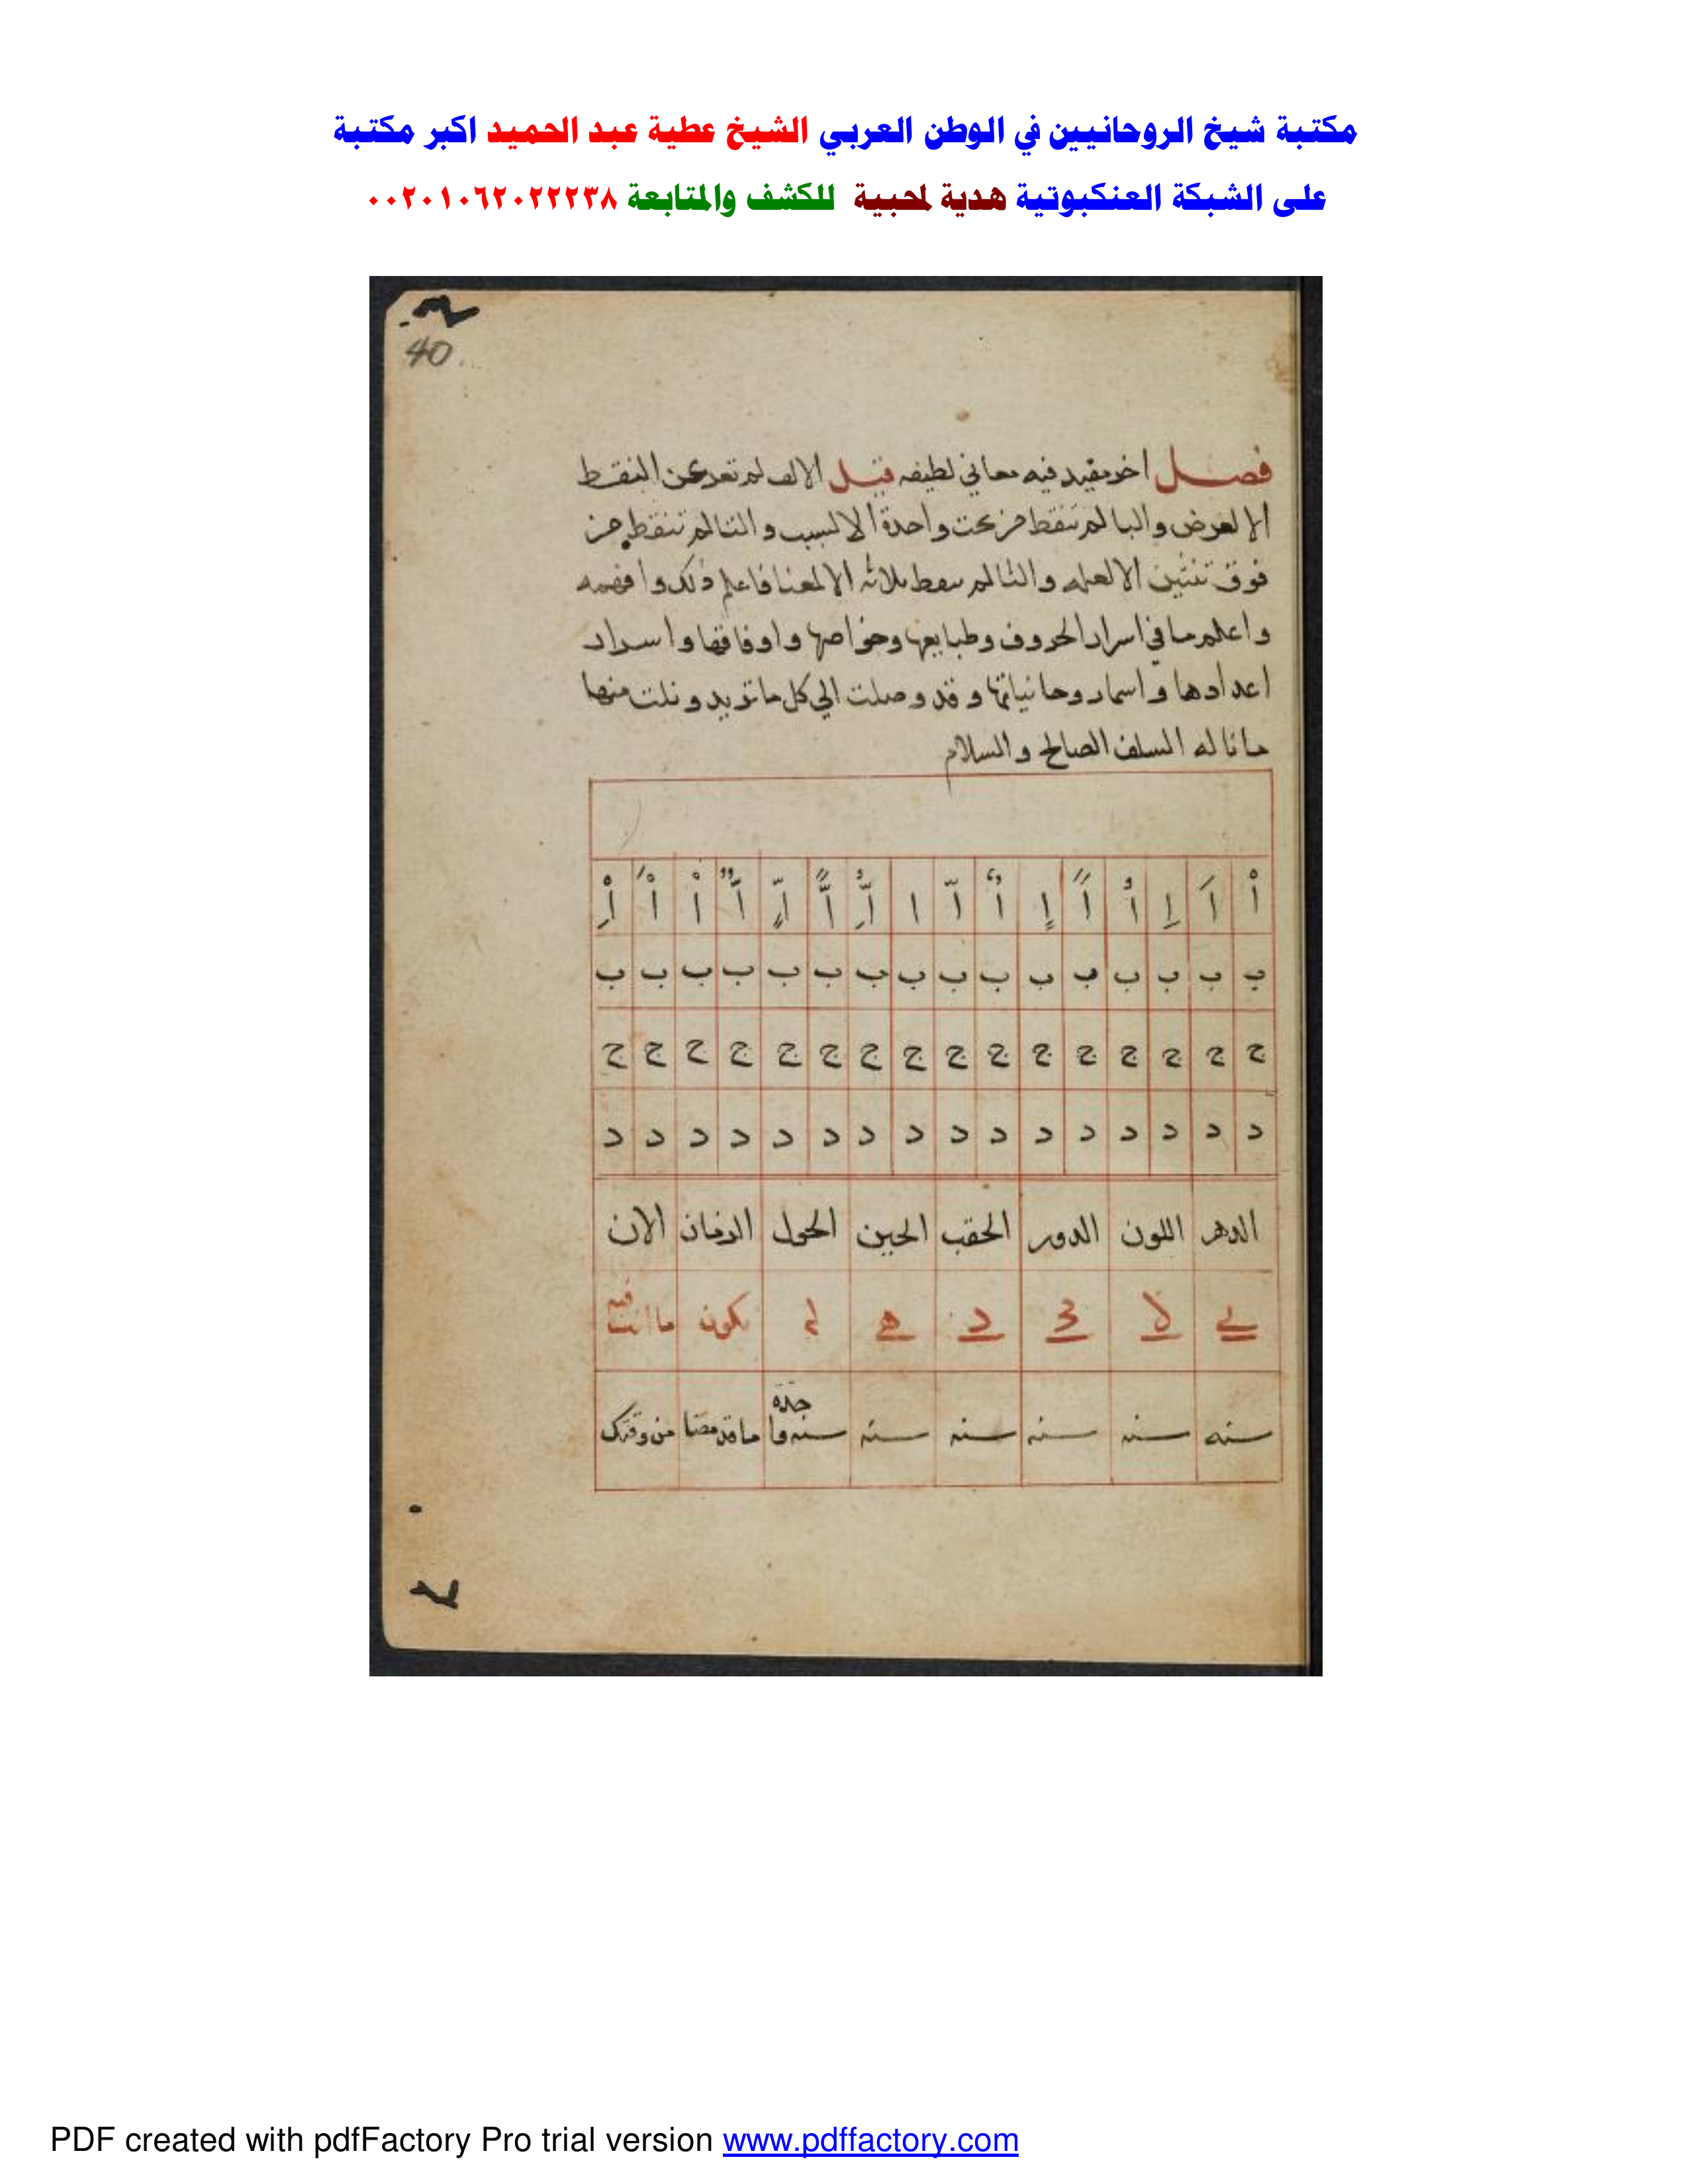 مكتبة شيخ الروحانيين في الوطن العربي الشيخ عطية عبد الحميد اكبر مكتبة
على الشبكة العنكبوتية هدية لمحبية للكشف والمتابعة ٠٠٢٠١٠٦٢٠٢٢٢٣٨
40
فصل اخر مفيد فيه معاني لطيفه قيل الالف لم تعد عن النقط
الا لعرض والبا لم تنقط من تحت واحدة الا لسبب والتا لم تنقط من
فوق ثنتين الا لعله والثا لم سقط ثلاثه الا لمعنا فاعلم ذلك وافهمه
واعلم ما في اسرار الحروف وطبايعها وخواصها واوفاقها واسرار
اعدادها واسما روحانياتها وقد وصلت الي كل ما تريد ونلت منها
ما ناله السلف الصالح والسلام
أْ اَ اِ اُ اً اٍ اٌ اّ ا
ب ب ب ب ب ب ب ب ب ب ب ب ب ب ب ب
ج ج ج ج ج ج ج ج ج ج ج ج ج ج ج ج
د د د د د د د د د د د د د د د د
الدهر اللون الدور الحقب الحين الحول الزمان الان
د ه يكون ما انت فيه
سنه سنه سنه سنه سنه سنه واحدة ما قد مضا من وقتك
PDF created with pdfFactory Pro trial version www.pdffactory.com